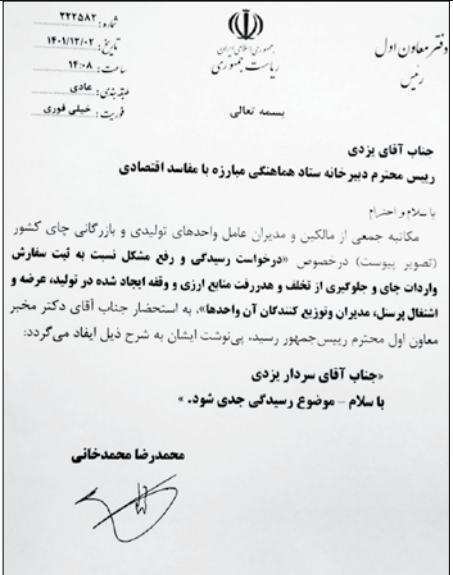 جمهوری اسلامی ایران
ریاست جمهوری
دفتر معاون اول
رئیس
شماره: ۲۲۲۵۸۲
تاریخ: ۱۴۰۱/۱۲/۰۲
ساعت: ۱۴:۰۸
طبقه‌بندی: عادی
فوریت: خیلی فوری
بسمه تعالی
جناب آقای یزدی
رییس محترم دبیرخانه ستاد هماهنگی مبارزه با مفاسد اقتصادی
با سلام و احترام
مکاتبه جمعی از مالکین و مدیران عامل واحدهای تولیدی و بازرگانی چای کشور
(تصویر پیوست) درخصوص «درخواست رسیدگی و رفع مشکل نسبت به ثبت سفارش
واردات چای و جلوگیری از تخلف و هدررفت منابع ارزی و وقفه ایجاد شده در تولید، عرضه و
اشتغال پرسنل، مدیران وتوزیع کنندگان آن واحدها»، به استحضار جناب آقای دکتر مخبر
معاون اول محترم رییس‌جمهور رسید، پی‌نوشت ایشان به شرح ذیل ایفاد می‌گردد:
«جناب آقای سردار یزدی
با سلام – موضوع رسیدگی جدی شود.»
محمدرضا محمدخانی